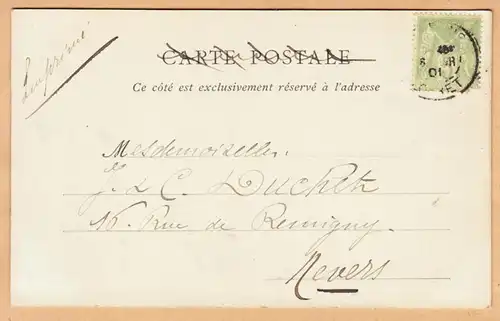 Imprimé
CARTE POSTALE
Ce côté est exclusivement réservé à l'adresse
Mesdemoiselles
J. & C.
16. Rue de Remigny.
Nevers